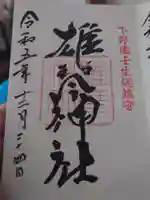 下野國壬生總鎮守
雄琴神社
令和五年十二月二十四日